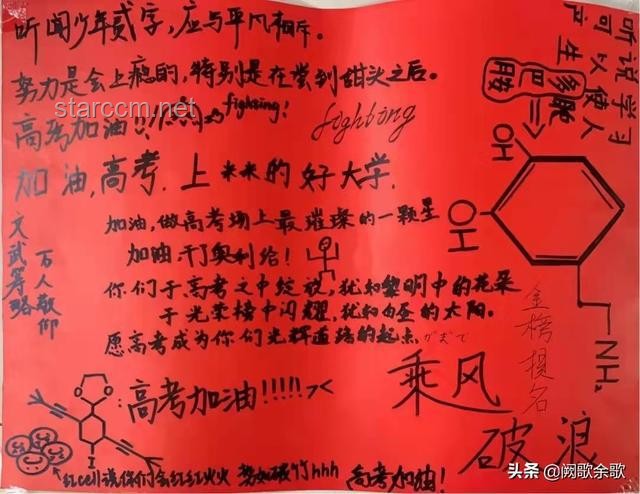 听闻少年贰字，应与平凡相斥。
努力是会上瘾的，特别是在尝到甜头之后。
starccm.net
fighting!
高考加油!!
fighting
加油，高考，上来来的好大学，
加油，做高考场上最璀璨的一颗星
加油干了奥利给!
你们于高考之中绽放，犹如黎明中的花朵
于光荣榜中闪耀，犹如白昼的太阳。
愿高考成为你们光辉道路的起点
文武筹略
万人敬仰
听说学习
可以使人
产生
多巴胺
OH
OH
NH₂
金榜提名
乘风
破浪
:高考加油!!!!!><
I
红cell说你们会红红火火 势如破竹hhh 高考加油!
头条 @阙歌余歌